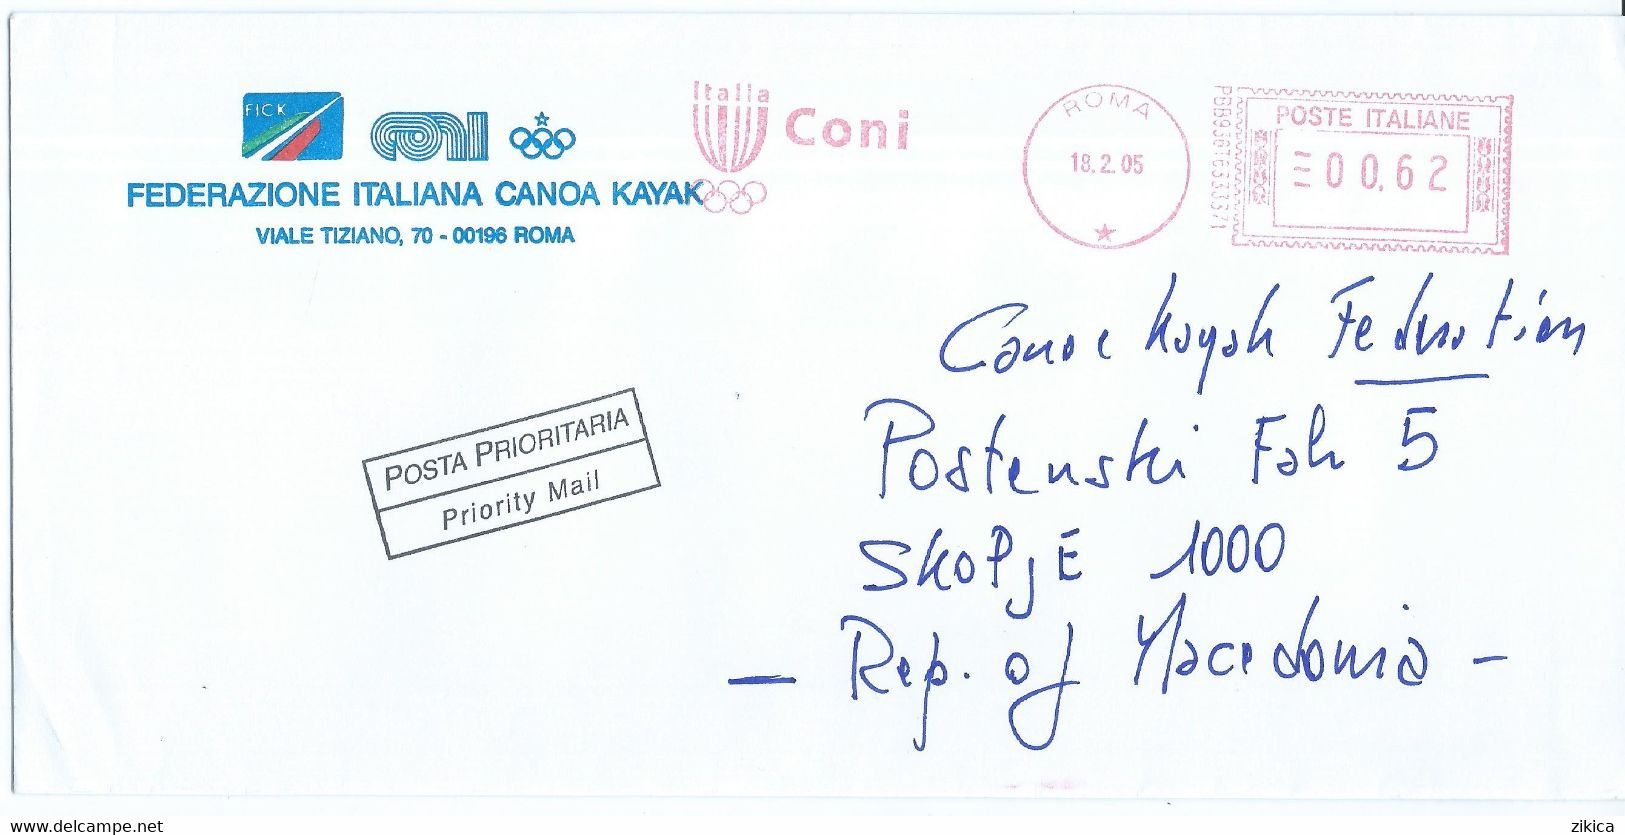 FICK
CONI
FEDERAZIONE ITALIANA CANOA KAYAK
VIALE TIZIANO, 70 - 00196 ROMA
Italia
Coni
ROMA
18.2.05
POSTE ITALIANE
00.62
POSTA PRIORITARIA
Priority Mail
Canoe Kayak Federation
Postenski Fah 5
SKOPjE 1000
- Rep. of Macedonia -
www.delcampe.net
zikica